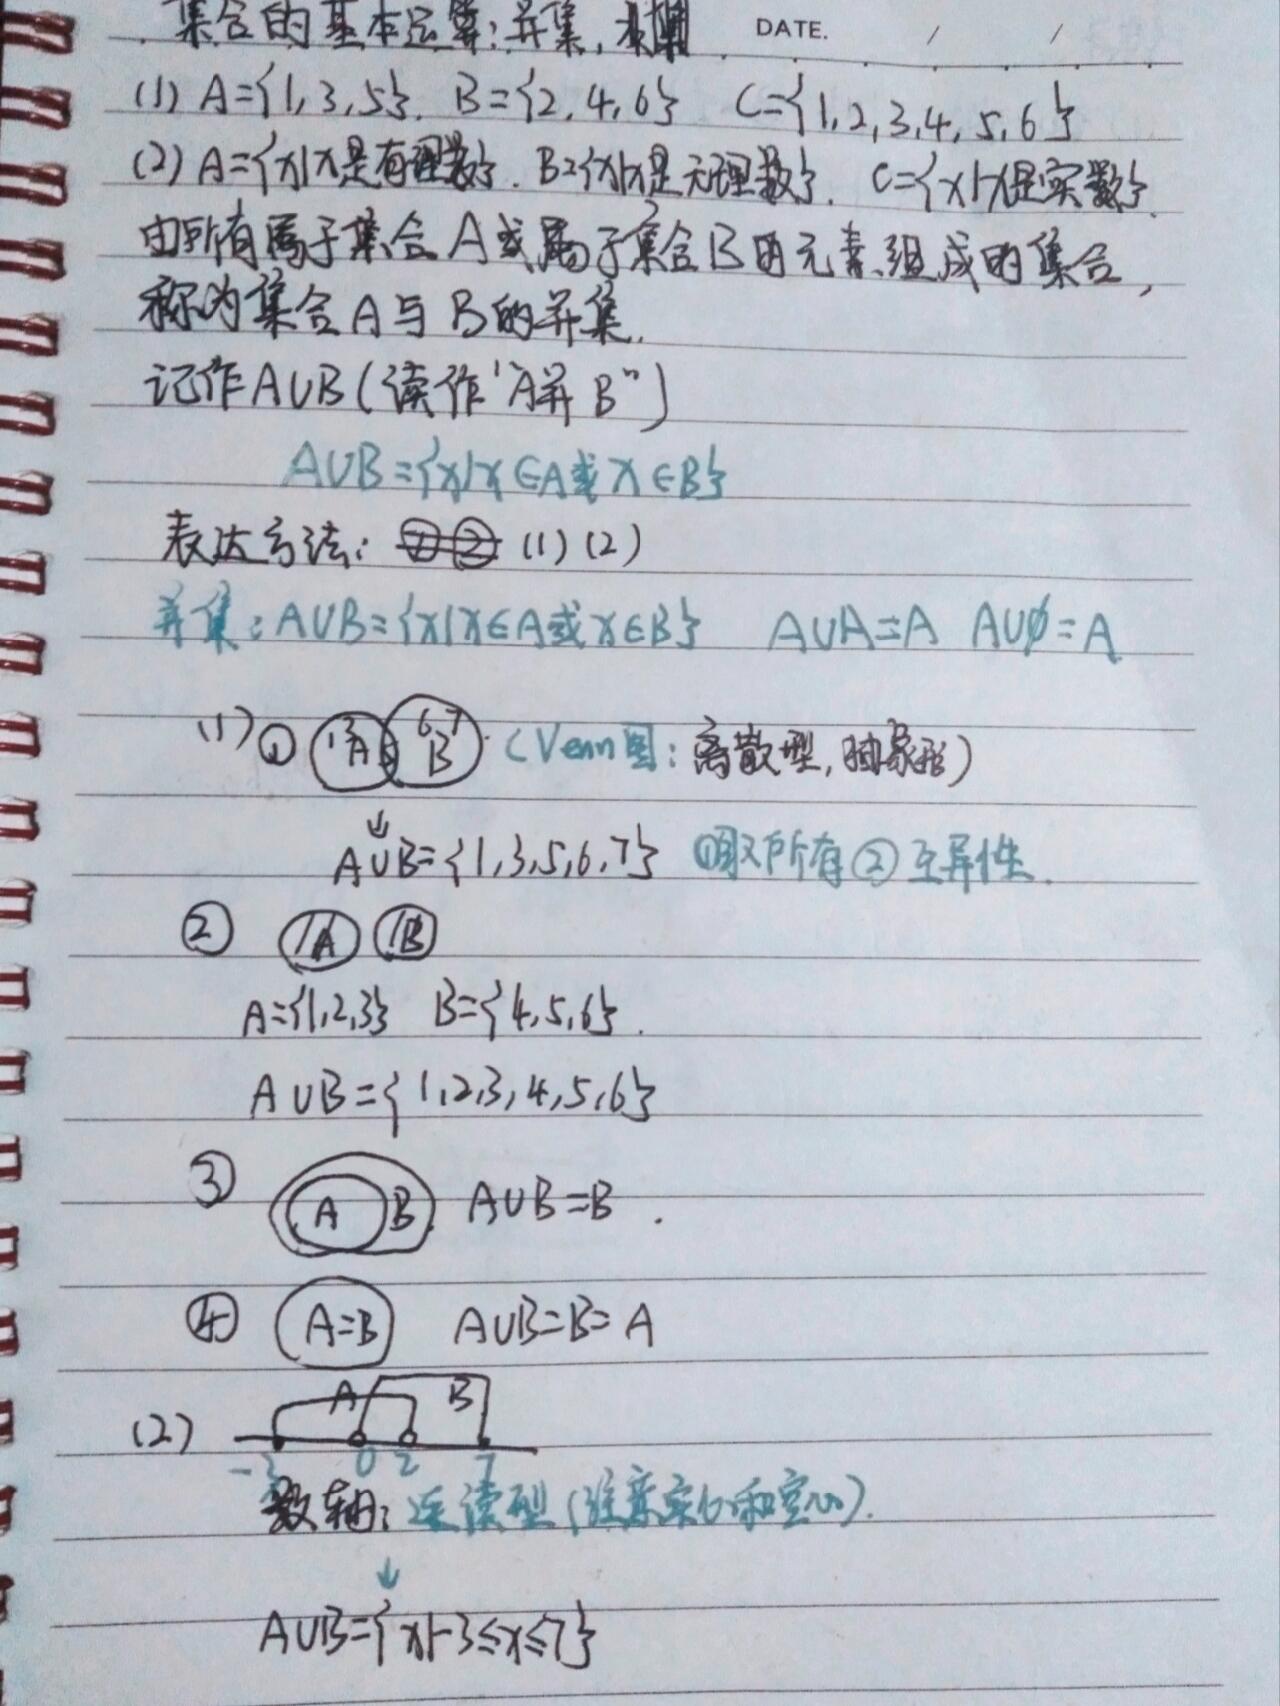 集合的基本运算:并集, DATE. / /
(1) A={1,3,5}. B={2,4,6} C={1,2,3,4,5,6}
(2) A={x|x是有理数}. B={x|x是无理数}. C={x|x是实数}.
由所有属于集合A或属于集合B的元素组成的集合,
称为集合A与B的并集.
记作A∪B(读作"A并B")
A∪B={x|x∈A或x∈B}
表达方法: (1) (2)
并集: A∪B={x|x∈A或x∈B} A∪A=A A∪∅=A
(1) ① 13 A 5 6 7 B (Venn图:离散型,抽象形)
↓
A∪B={1,3,5,6,7} ①取所有②互异性.
② A B
A={1,2,3} B={4,5,6}.
A∪B={1,2,3,4,5,6}
③ A B A∪B=B.
④ A=B A∪B=B=A
(2) A B
-3 0 2 7
数轴:连续型(注意实心和空心).
↓
A∪B={x|-3≤x≤7}